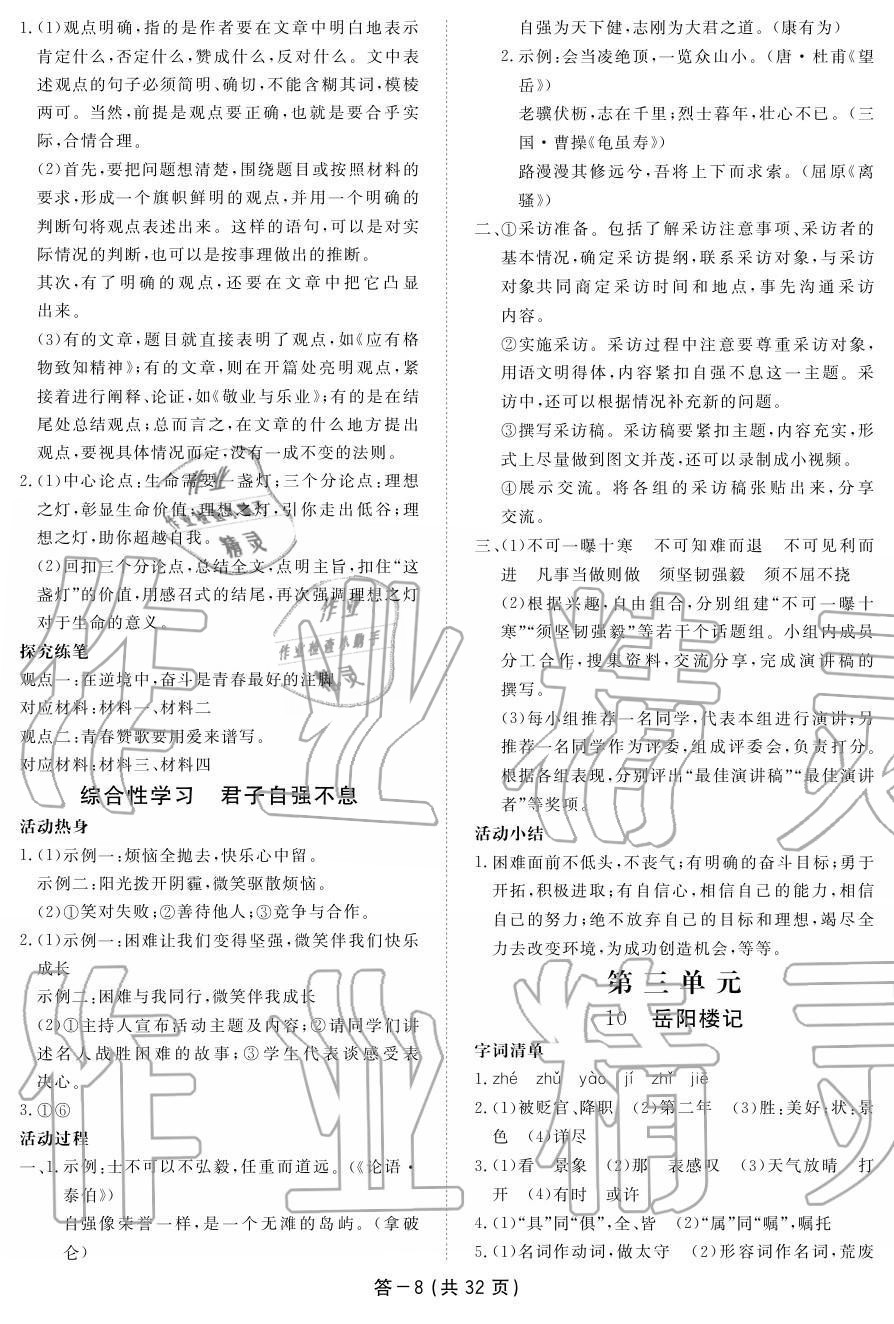 1.(1)观点明确,指的是作者要在文章中明白地表示
肯定什么,否定什么,赞成什么,反对什么。文中表
述观点的句子必须简明、确切,不能含糊其词,模棱
两可。当然,前提是观点要正确,也就是要合乎实
际,合情合理。
(2)首先,要把问题想清楚,围绕题目或按照材料的
要求,形成一个旗帜鲜明的观点,并用一个明确的
判断句将观点表述出来。这样的语句,可以是对实
际情况的判断,也可以是按事理做出的推断。
其次,有了明确的观点,还要在文章中把它凸显
出来。
(3)有的文章,题目就直接表明了观点,如《应有格
物致知精神》;有的文章,则在开篇处亮明观点,紧
接着进行阐释、论证,如《敬业与乐业》;有的是在结
尾处总结观点;总而言之,在文章的什么地方提出
观点,要视具体情况而定,没有一成不变的法则。
2.(1)中心论点:生命需要一盏灯;三个分论点:理想
之灯,彰显生命价值;理想之灯,引你走出低谷;理
想之灯,助你超越自我。
(2)回扣三个分论点,总结全文,点明主旨,扣住“这
盏灯”的价值,用感召式的结尾,再次强调理想之灯
对于生命的意义。
探究练笔
观点一:在逆境中,奋斗是青春最好的注脚
对应材料:材料一、材料二
观点二:青春赞歌要用爱来谱写。
对应材料:材料三、材料四
综合性学习 君子自强不息
活动热身
1.(1)示例一:烦恼全抛去,快乐心中留。
示例二:阳光拨开阴霾,微笑驱散烦恼。
(2)①笑对失败;②善待他人;③竞争与合作。
2.(1)示例一:困难让我们变得坚强,微笑伴我们快乐
成长
示例二:困难与我同行,微笑伴我成长
(2)①主持人宣布活动主题及内容;②请同学们讲
述名人战胜困难的故事;③学生代表谈感受表
决心。
3.①⑥
活动过程
一、1.示例:士不可以不弘毅,任重而道远。(《论语·
泰伯》)
自强像荣誉一样,是一个无滩的岛屿。(拿破
仑)
自强为天下健,志刚为大君之道。(康有为)
2.示例:会当凌绝顶,一览众山小。(唐·杜甫《望
岳》)
老骥伏枥,志在千里;烈士暮年,壮心不已。(三
国·曹操《龟虽寿》)
路漫漫其修远兮,吾将上下而求索。(屈原《离
骚》)
二、①采访准备。包括了解采访注意事项、采访者的
基本情况,确定采访提纲,联系采访对象,与采访
对象共同商定采访时间和地点,事先沟通采访
内容。
②实施采访。采访过程中注意要尊重采访对象,
用语文明得体,内容紧扣自强不息这一主题。采
访中,还可以根据情况补充新的问题。
③撰写采访稿。采访稿要紧扣主题,内容充实,形
式上尽量做到图文并茂,还可以录制成小视频。
④展示交流。将各组的采访稿张贴出来,分享
交流。
三、(1)不可一曝十寒 不可知难而退 不可见利而
进 凡事当做则做 须坚韧强毅 须不屈不挠
(2)根据兴趣,自由组合,分别组建“不可一曝十
寒”“须坚韧强毅”等若干个话题组。小组内成员
分工合作,搜集资料,交流分享,完成演讲稿的
撰写。
(3)每小组推荐一名同学,代表本组进行演讲;另
推荐一名同学作为评委,组成评委会,负责打分。
根据各组表现,分别评出“最佳演讲稿”“最佳演讲
者”等奖项。
活动小结
1.困难面前不低头,不丧气;有明确的奋斗目标;勇于
开拓,积极进取;有自信心,相信自己的能力,相信
自己的努力;绝不放弃自己的目标和理想,竭尽全
力去改变环境,为成功创造机会,等等。
第三单元
10 岳阳楼记
字词清单
1.zhé zhǔ yào jí zhǐ jiē
2.(1)被贬官、降职 (2)第二年 (3)胜:美好;状:景
色 (4)详尽
3.(1)看 景象 (2)那 表感叹 (3)天气放晴 打
开 (4)有时 或许
4.(1)“具”同“俱”,全、皆 (2)“属”同“嘱”,嘱托
5.(1)名词作动词,做太守 (2)形容词作名词,荒废
答－8(共32页)
作业
作业检查小助手
精灵
作业
作业检查小助手
精灵
作业精灵
作业精灵